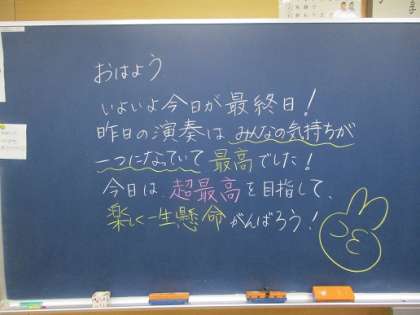 おはよう
いよいよ今日が最終日!
昨日の演奏はみんなの気持ちが
一つになっていて最高でした!
今日は超最高を目指して、
楽しく一生懸命がんばろう!